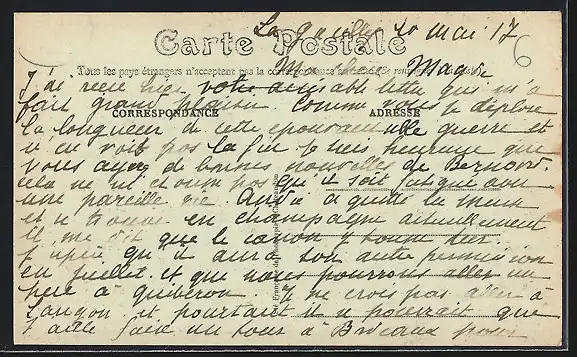 La Gacilly 10 mai 17
Carte Postale
Tous les pays étrangers n'acceptent pas la correspondance
Ma chère Magde
J'ai reçu hier votre aimable lettre qui m'a
fait grand plaisir. Comme vous je déplore
CORRESPONDANCE
ADRESSE
la longueur de cette épouvantable guerre et
n'en voit pas la fin. Je suis heureuse que
vous ayez de bonnes nouvelles de Bernard.
cela ne m'étonne pas qu'il soit fatigué avec
une pareille vie. André a quitté la meuse
et se trouve en champagne actuellement
il me dit que le canon y tonne
J'espère qu'il aura son autre permission
en juillet et que nous pourrons aller un
peu à quiberon. Je ne crois pas aller à
Langon et pourtant il se pourrait que
j'aille faire un tour à pour